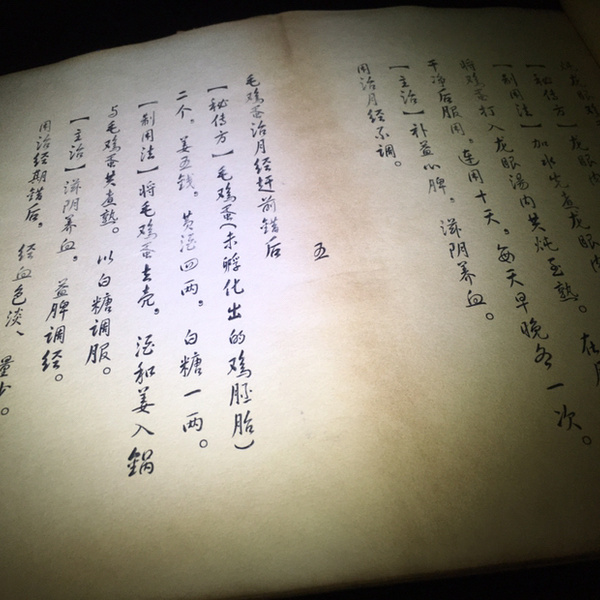 【秘传方】龙眼肉
【制用法】加水先煮龙眼肉
将鸡蛋打入龙眼汤内共炖至熟。在月
干净后服用。连用十天。每天早晚各一次。
【主治】补益心脾。滋阴养血。
用治月经不调。
五
毛鸡蛋治月经赶前错后
【秘传方】毛鸡蛋(未孵化出的鸡胚胎)
二个。姜五钱。黄酒四两。白糖一两。
【制用法】将毛鸡蛋去壳。酒和姜入锅
与毛鸡蛋共煮熟。以白糖调服。
【主治】滋阴养血。益脾调经。
用治经期错后。经血色淡、量少。